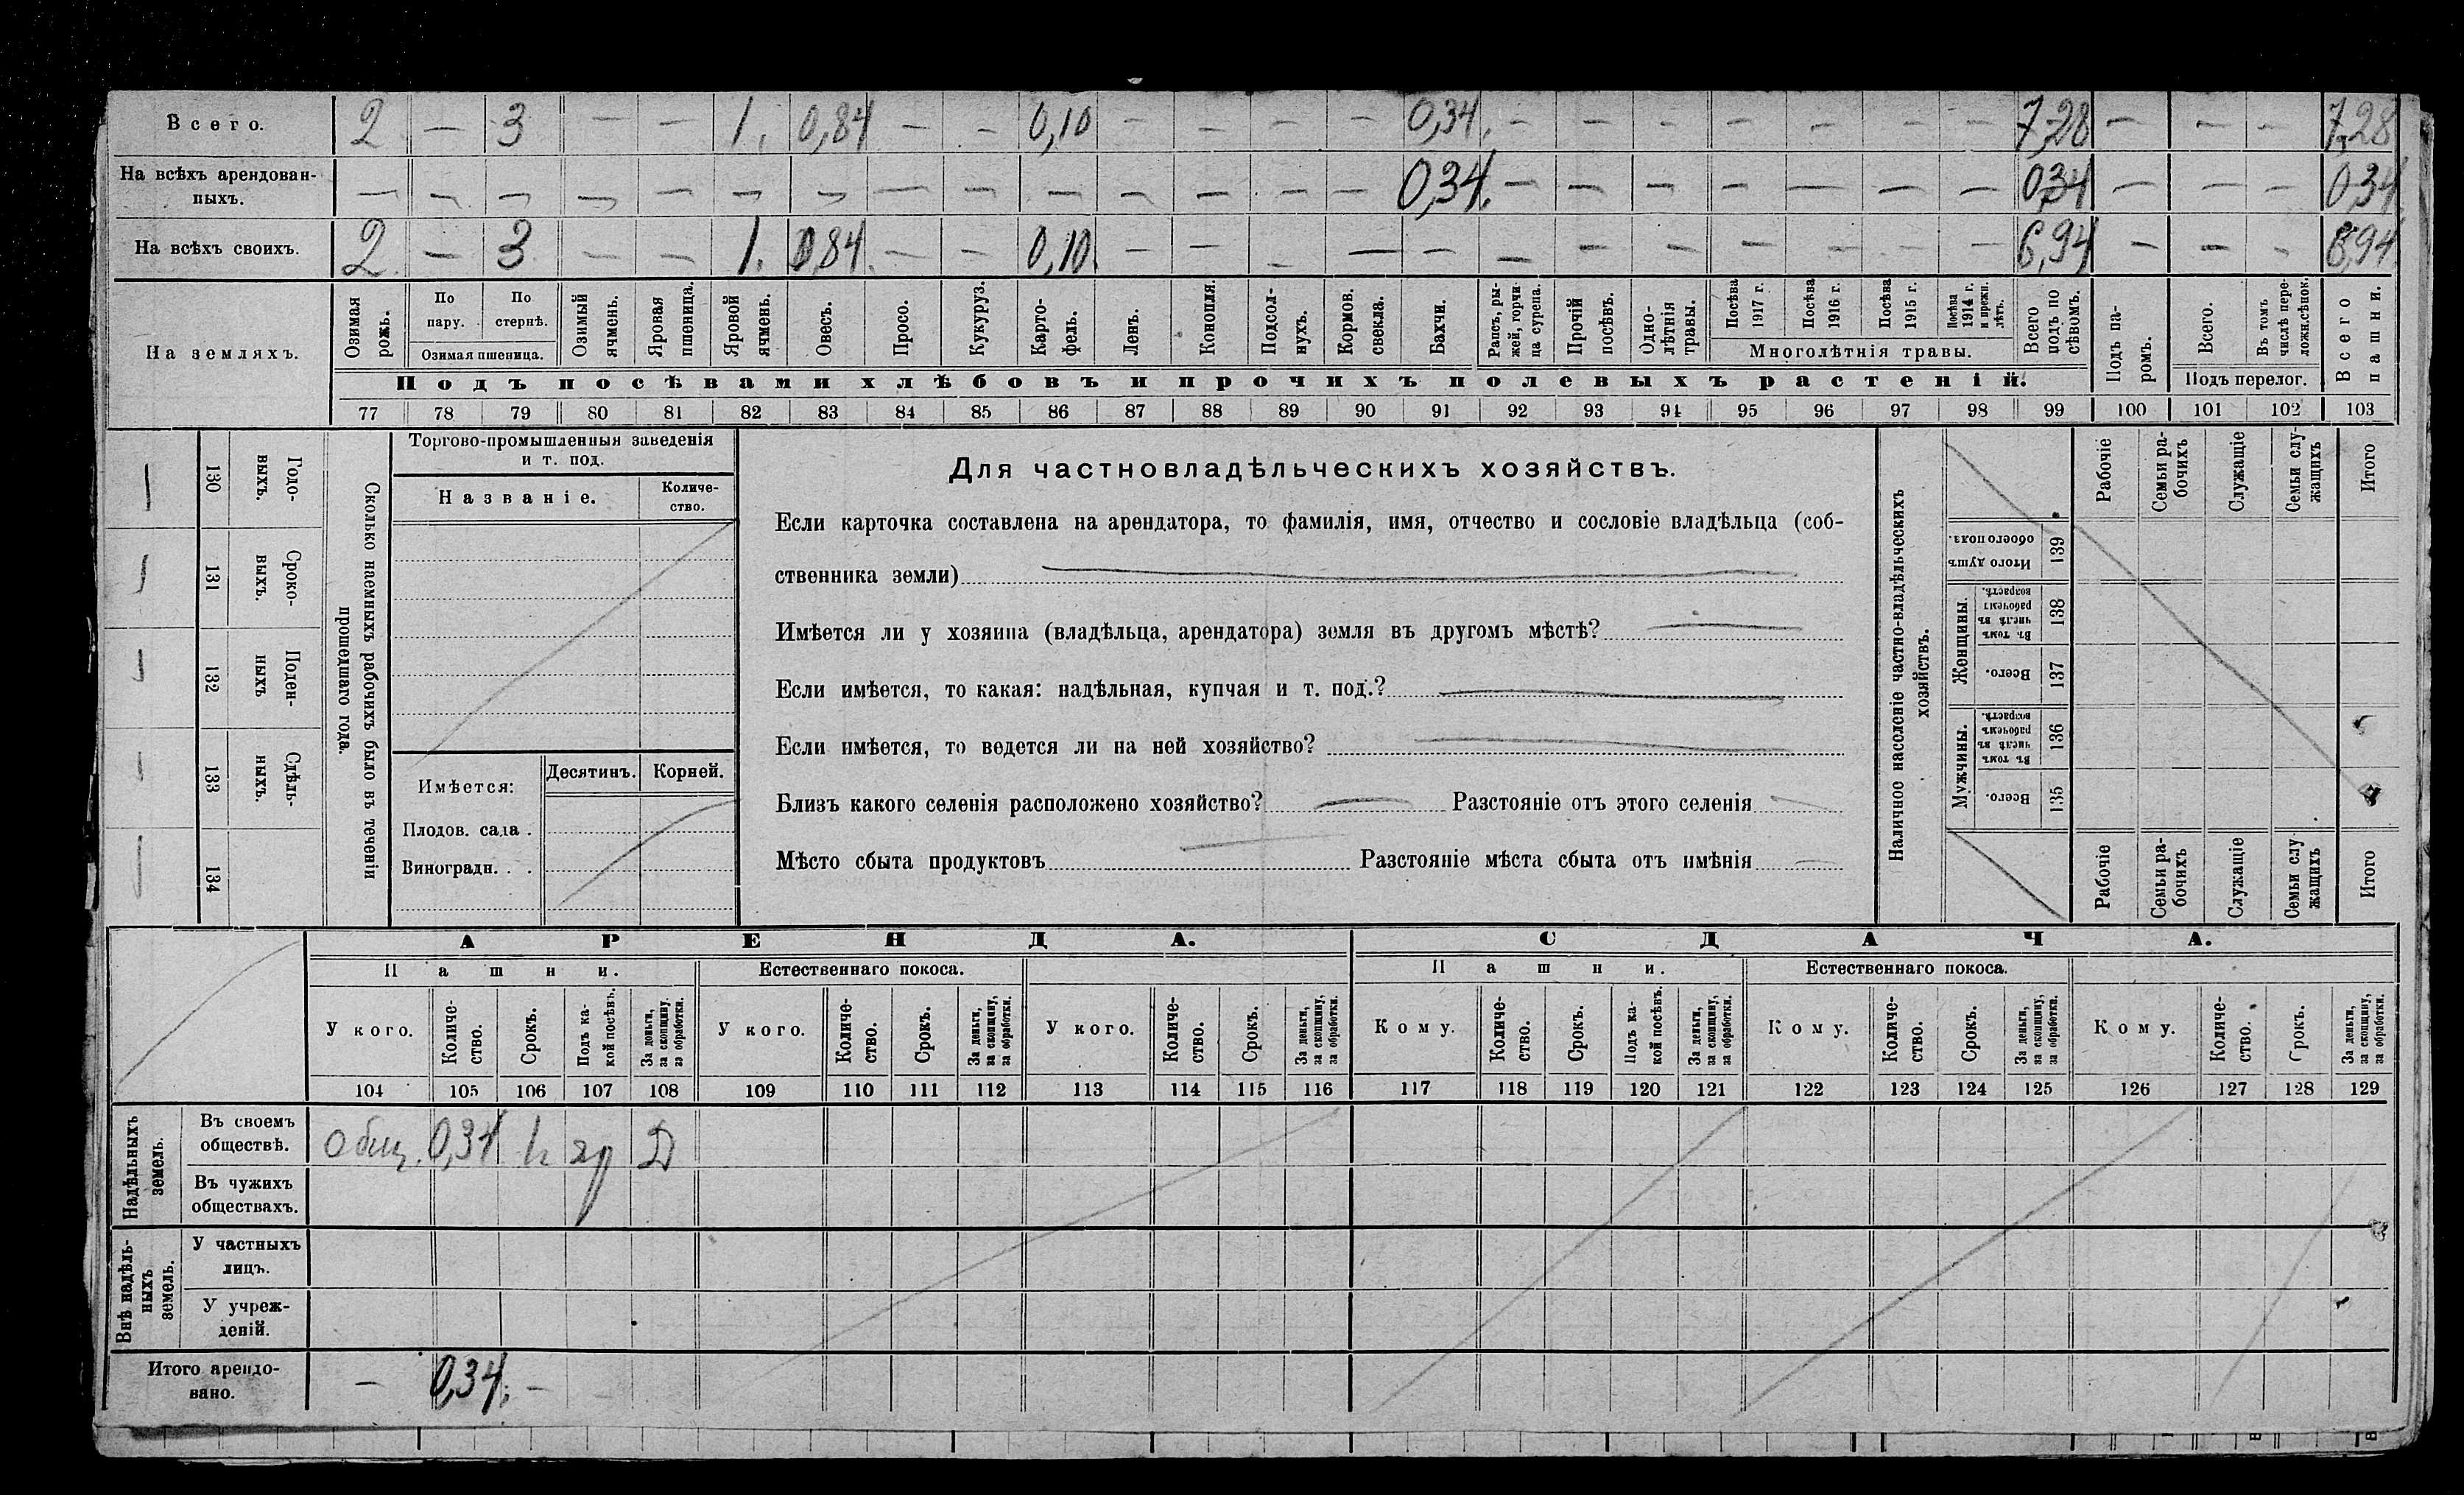 Всего. 2 — 3 — — 1. 0,84 — — 0,10 — — — — 0,34. — — — — — — — 7,28 — — — 7,28
На всѣхъ арендован-
ныхъ. — — — — — — — — — — — — — — 0,34. — — — — — — — 0,34 — — — 0,34
На всѣхъ своихъ. 2. — 3 — — 1. 0,84. — — 0,10. — — — — — — — — — — — — 6,94 — — — 6,94
На земляхъ.
Озимая рожь.
По пару.
По стернѣ.
Озимая пшеница.
Озимый ячмень.
Яровая пшеница.
Яровой ячмень.
Овесъ.
Просо.
Кукуруз.
Карто-
фель.
Ленъ.
Конопля.
Подсол-
нухъ.
Кормов.
свекла.
Бахчи.
Рапсъ, ры-
жей, горчи-
ца сурепа.
Прочій
посѣвъ.
Одно-
лѣтнія
травы.
Посѣва
1917 г.
Посѣва
1916 г.
Посѣва
1915 г.
Посѣва
1914 г.
и прежн.
лѣтъ.
Многолѣтнія травы.
Всего
подъ по
сѣвомъ.
Подъ па-
ромъ.
Всего.
Въ томъ
числѣ пере-
ложн.сѣнок.
Подъ перелог.
Всего
пашни.
Подъ посѣвами хлѣбовъ и прочихъ полевыхъ растеній.
77 78 79 80 81 82 83 84 85 86 87 88 89 90 91 92 93 94 95 96 97 98 99 100 101 102 103
Сколько наемныхъ рабочихъ было въ теченіи
прошедшаго года.
Годо-
выхъ.
130
—
Сроко-
выхъ.
131
—
Поден-
ныхъ
132
—
Сдѣль-
ныхъ.
133
—
134
—
Торгово-промышленныя заведенія
и т. под.
Названіе.
Количе-
ство.
Имѣется:
Десятинъ.
Корней.
Плодов. сада .
Виноградн. . .
Для частновладѣльческихъ хозяйствъ.
Если карточка составлена на арендатора, то фамилія, имя, отчество и сословіе владѣльца (соб-
ственника земли) —
Имѣется ли у хозяина (владѣльца, арендатора) земля въ другомъ мѣстѣ? —
Если имѣется, то какая: надѣльная, купчая и т. под.? —
Если имѣется, то ведется ли на ней хозяйство? —
Близъ какого селенія расположено хозяйство? — Разстояніе отъ этого селенія —
Мѣсто сбыта продуктовъ — Разстояніе мѣста сбыта отъ имѣнія —
Наличное населеніе частно-владѣльческихъ
хозяйствъ.
Рабочіе
Семьи ра-
бочихъ
Служащіе
Семьи слу-
жащихъ
Итого
Итого душъ
обоего пола.
139
Женщины.
Въ томъ
числѣ въ
рабочемъ
возрастѣ.
138
Всего.
137
Мужчины.
Въ томъ
числѣ въ
рабочемъ
возрастѣ.
136
Всего.
135
Рабочіе
Семьи ра-
бочихъ
Служащіе
Семьи слу
жащихъ
Итого
АРЕНДА.
СДАЧА.
Пашни.
Естественнаго покоса.
Пашни.
Естественнаго покоса.
У кого.
Количе-
ство.
Срокъ.
Подъ ка-
кой посѣвъ.
За деньги,
за скопщину,
за обработки.
У кого.
Количе-
ство.
Срокъ.
За деньги,
за скопщину,
за обработки.
У кого.
Количе-
ство.
Срокъ.
За деньги,
за скопщину,
за обработки.
Кому.
Количе-
ство.
Срокъ.
Подъ ка-
кой посѣвъ.
За деньги,
за скопщину,
за обработки.
Кому.
Количе-
ство.
Срокъ.
За деньги,
за скопщину,
за обработки.
Кому.
Количе-
ство.
Срокъ.
За деньги,
за скопщину,
за обработки.
104 105 106 107 108 109 110 111 112 113 114 115 116 117 118 119 120 121 122 123 124 125 126 127 128 129
Надѣльныхъ
земель.
Въ своемъ
обществѣ.
Общ. 0,34 Д
Въ чужихъ
обществахъ.
Внѣ надѣль-
ныхъ
земель.
У частныхъ
лицъ.
У учреж-
деній.
Итого арендо-
вано.
— 0,34. —